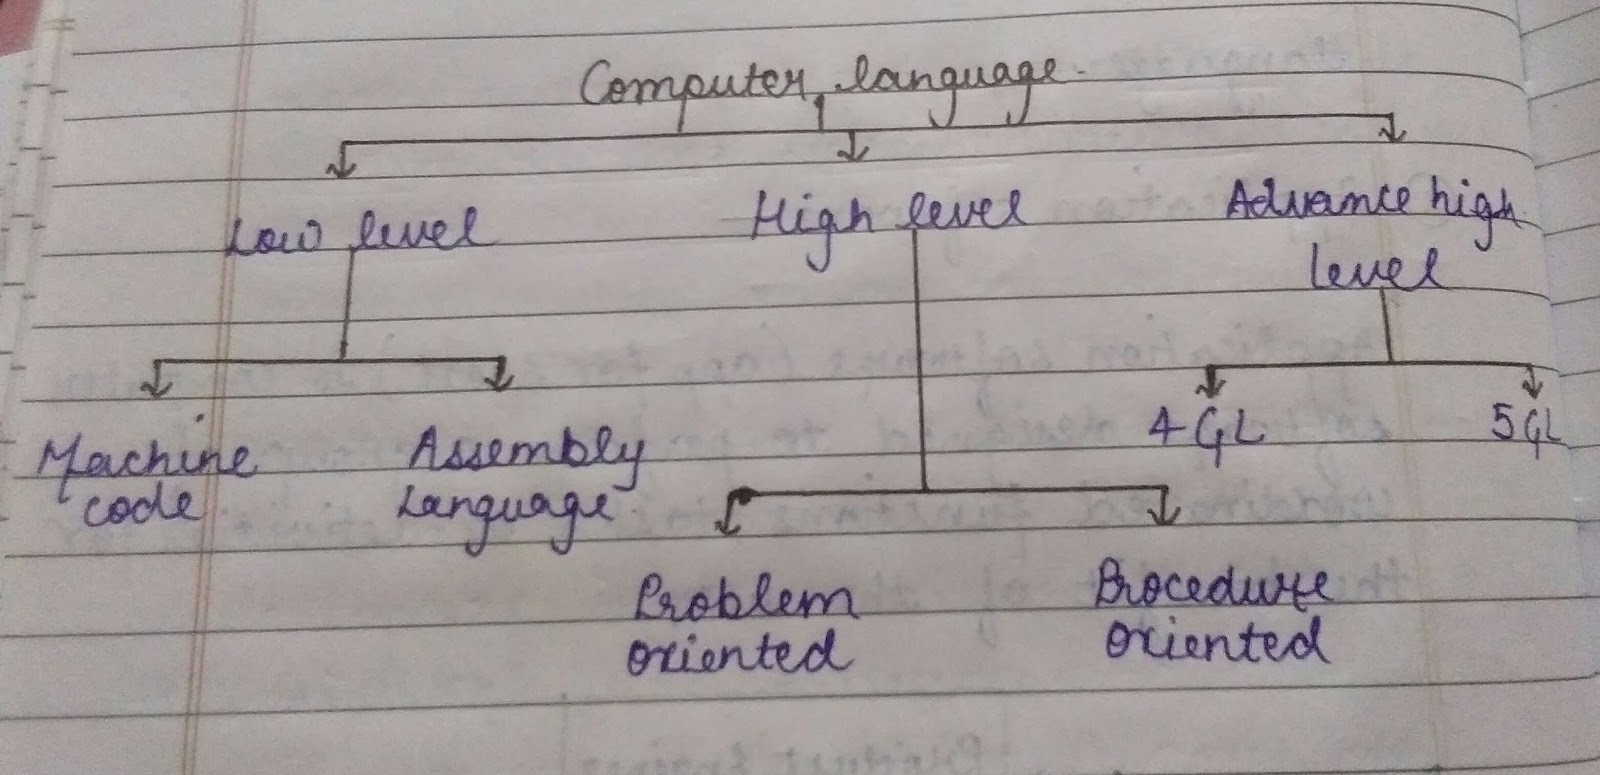 Computer language
Low level
High level
Advance high
level
Machine
code
Assembly
Language
4GL
5GL
Problem
oriented
Procedure
oriented